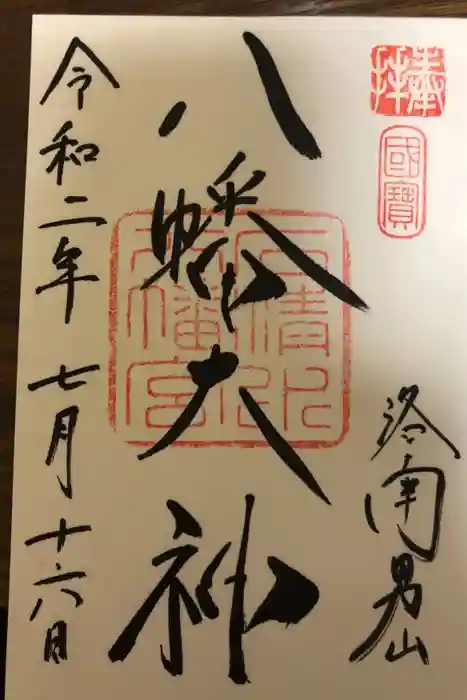 奉拝
國寶
洛南男山
八幡大神
石清水八幡宮
令和二年七月十六日